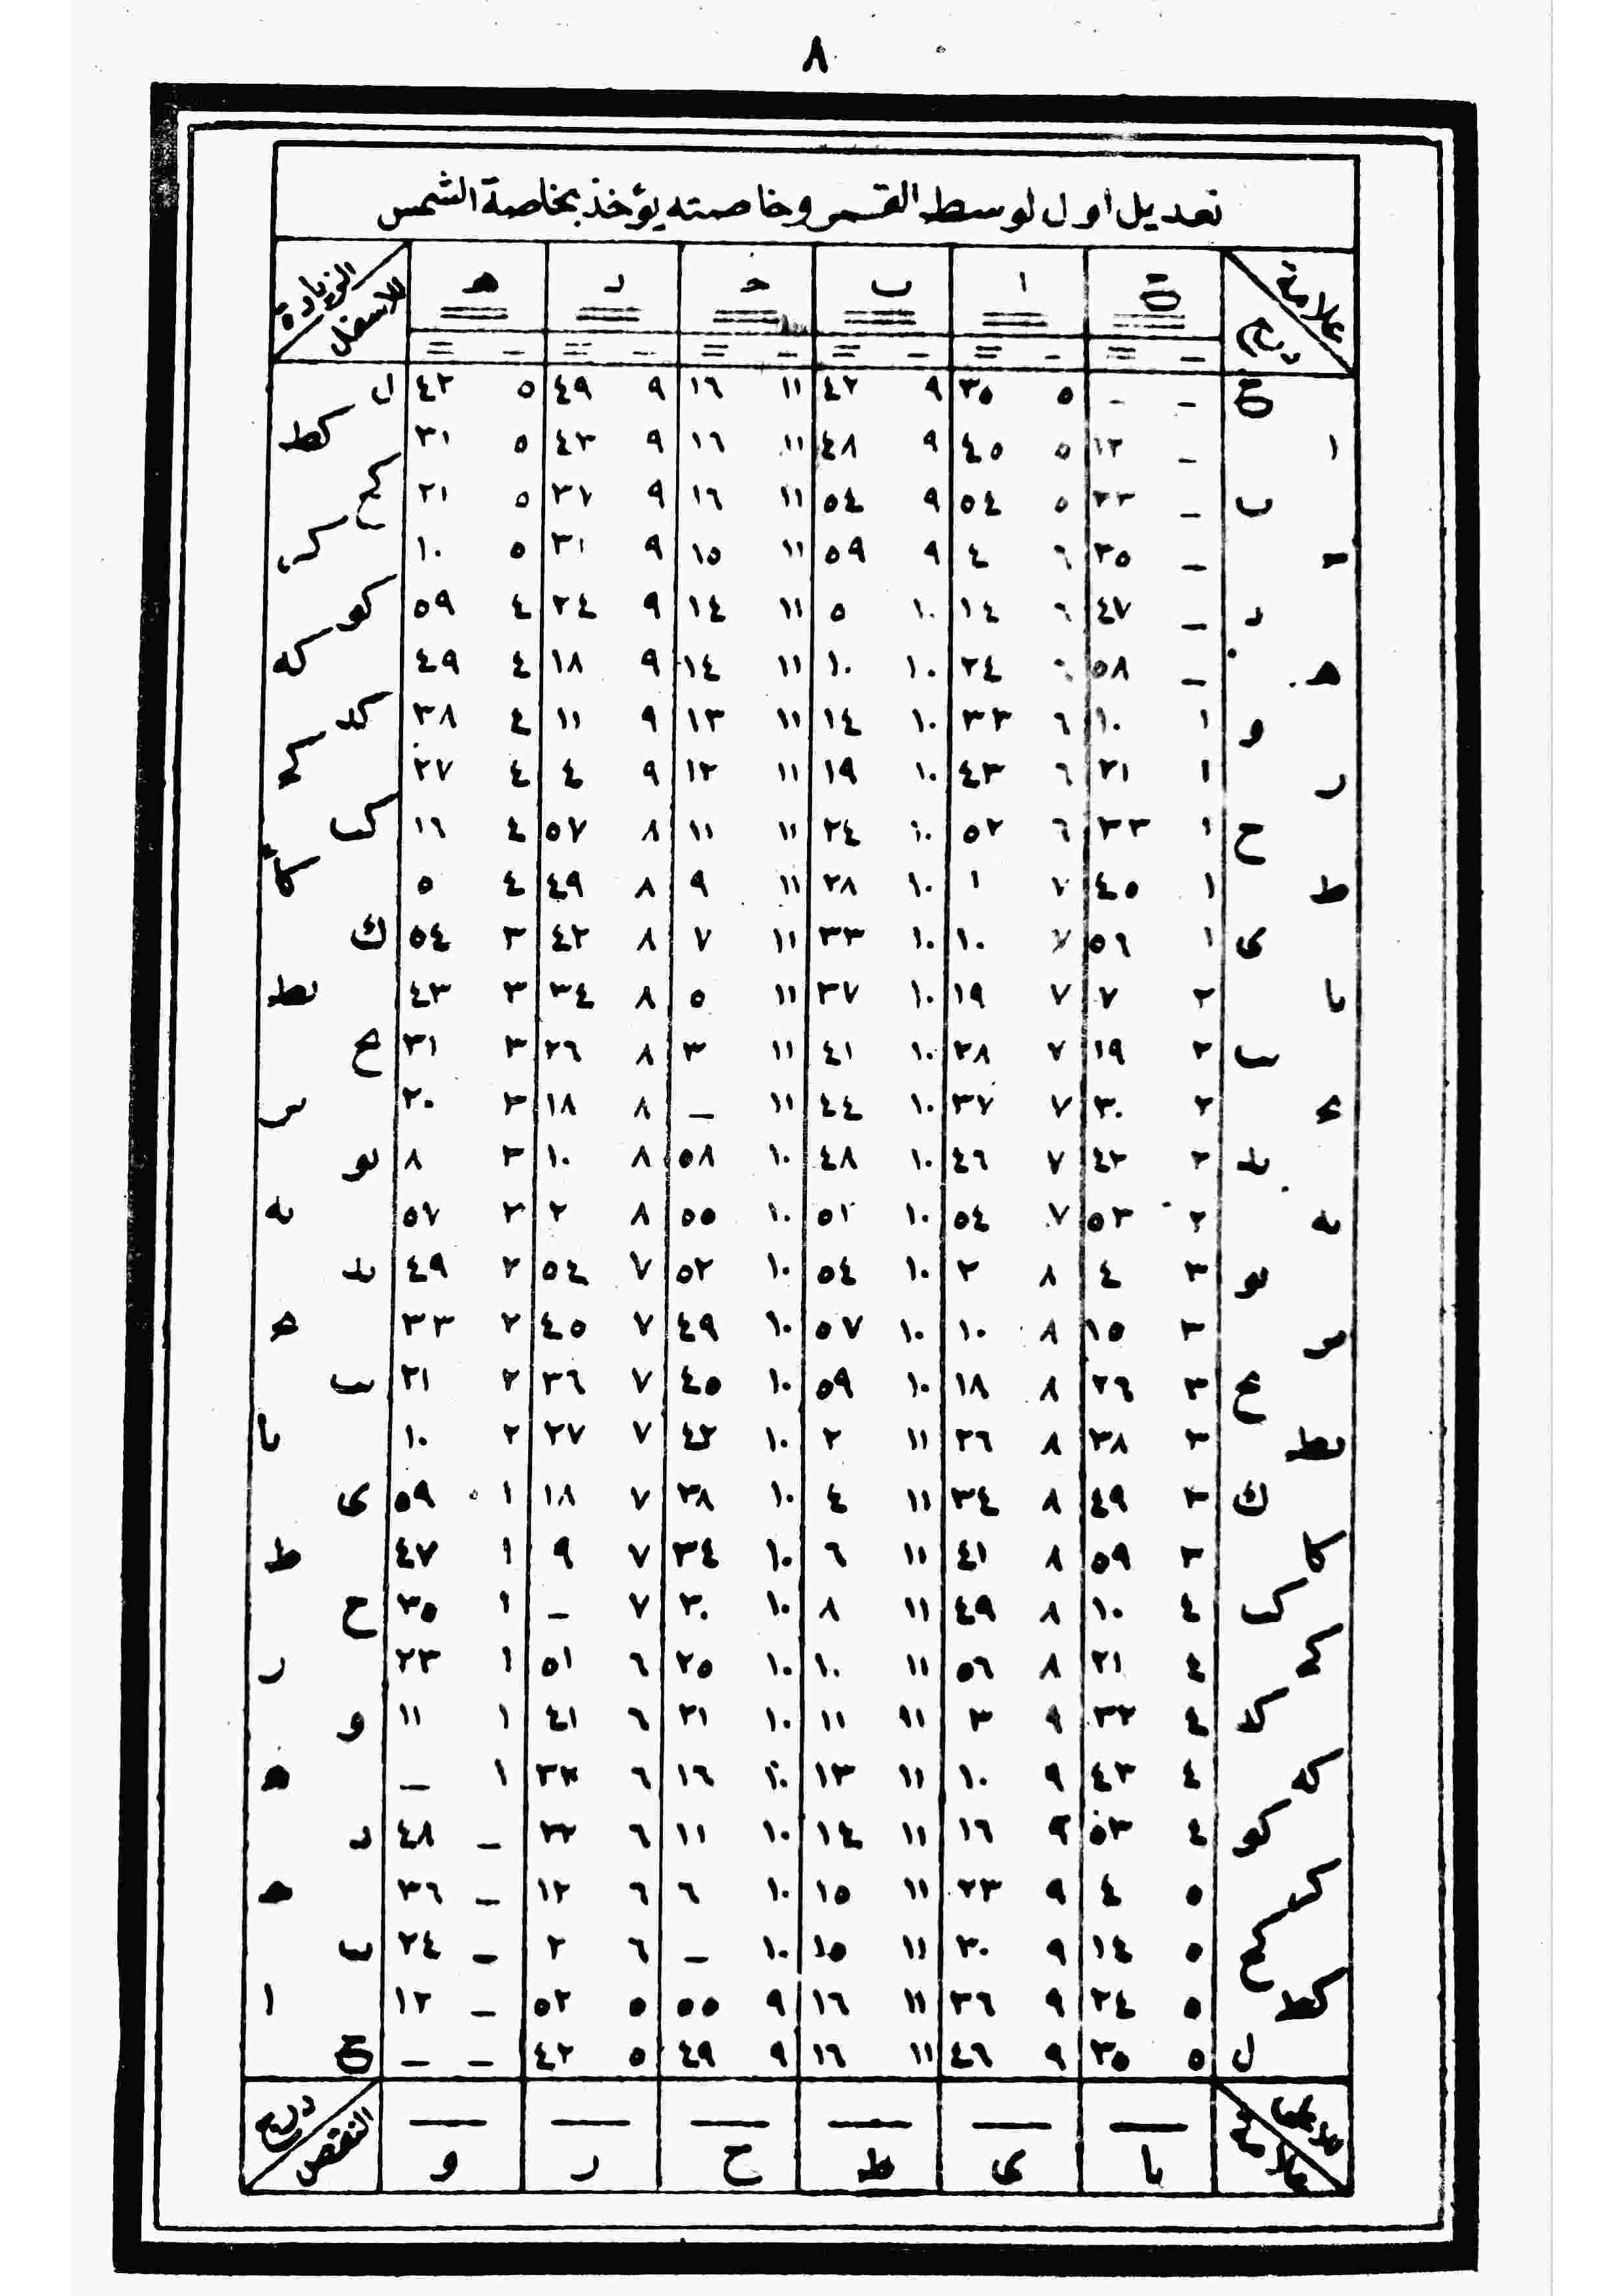 ٨
تعديل اول لوسط القمر وخاصته يؤخذ بخاصة الشمس
علامة درج ا ب ح د ه الزيادة الاسفل
ـ ـ ٥ ٣٥ ٩ ٤٢ ١١ ١٦ ٩ ٤٩ ٥ ٤٢ ل
ا ـ ١٢ ٥ ٤٥ ٩ ٤٨ ١١ ١٦ ٩ ٤٣ ٥ ٣١ كط
ب ـ ٢٣ ٥ ٥٤ ٩ ٥٤ ١١ ١٦ ٩ ٣٧ ٥ ٢١ كح
ح ـ ٣٥ ٦ ٤ ٩ ٥٩ ١١ ١٥ ٩ ٣١ ٥ ١٠ كر
د ـ ٤٧ ٦ ١٤ ١٠ ٥ ١١ ١٤ ٩ ٢٤ ٤ ٥٩ كو
ه ـ ٥٨ ٢٤ ١٠ ١٠ ١١ ١٤ ٩ ١٨ ٤ ٤٩ كه
و ١ ١٠ ٦ ٣٣ ١٠ ١٤ ١١ ١٣ ٩ ١١ ٤ ٣٨ كد
ر ١ ٢١ ٦ ٤٣ ١٠ ١٩ ١١ ١٢ ٩ ٤ ٤ ٢٧ كح
ح ١ ٣٣ ٦ ٥٢ ١٠ ٢٤ ١١ ١١ ٨ ٥٧ ٤ ١٦ كب
ط ١ ٤٥ ٧ ١ ١٠ ٢٨ ١١ ٩ ٨ ٤٩ ٤ ٥ كا
ى ١ ٥٦ ٧ ١٠ ١٠ ٣٣ ١١ ٧ ٨ ٤٢ ٣ ٥٤ ك
يا ٢ ٧ ٧ ١٩ ١٠ ٣٧ ١١ ٥ ٨ ٣٤ ٣ ٤٣ يط
يب ٢ ١٩ ٧ ٢٨ ١٠ ٤١ ١١ ٣ ٨ ٢٦ ٣ ٣١ يح
يح ٢ ٣٠ ٧ ٣٧ ١٠ ٤٤ ١١ ـ ٨ ١٨ ٣ ٢٠ ير
يد ٢ ٤٢ ٧ ٤٦ ١٠ ٤٨ ١٠ ٥٨ ٨ ١٠ ٣ ٨ يو
يه ٢ ٥٣ ٧ ٥٤ ١٠ ٥١ ١٠ ٥٥ ٨ ٢ ٢ ٥٧ يه
يو ٣ ٤ ٨ ٢ ١٠ ٥٤ ١٠ ٥٢ ٧ ٥٤ ٢ ٤٩ يد
ير ٣ ١٥ ٨ ١٠ ١٠ ٥٧ ١٠ ٤٩ ٧ ٤٥ ٢ ٣٣
يح ٣ ٢٦ ٨ ١٨ ١٠ ٥٩ ١٠ ٤٥ ٧ ٣٦ ٢ ٢١ يب
يط ٣ ٣٨ ٨ ٢٦ ١١ ٢ ١٠ ٤٢ ٧ ٢٧ ٢ ١٠ يا
ك ٣ ٤٩ ٨ ٣٤ ١١ ٤ ١٠ ٣٨ ٧ ١٨ ١ ٥٩ ى
كا ٣ ٥٩ ٨ ٤١ ١١ ٦ ١٠ ٣٤ ٧ ٩ ١ ٤٧ ط
كب ٤ ١٠ ٨ ٤٩ ١١ ٨ ١٠ ٣٠ ٧ ـ ١ ٣٥ ح
كح ٤ ٢١ ٨ ٥٦ ١١ ١٠ ١٠ ٢٥ ٦ ٥١ ١ ٢٣ ر
كد ٤ ٣٢ ٩ ٣ ١١ ١١ ١٠ ٢١ ٦ ٤١ ١ ١١ و
كه ٤ ٤٣ ٩ ١٠ ١١ ١٣ ١٠ ١٦ ٦ ٣٢ ١ ـ ه
كو ٤ ٥٣ ٩ ١٦ ١١ ١٤ ١٠ ١١ ٦ ٢٢ ـ ٤٨ د
كر ٥ ٤ ٩ ٢٣ ١١ ١٥ ١٠ ٦ ٦ ١٢ ـ ٣٦ ح
كح ٥ ١٤ ٩ ٣٠ ١١ ١٥ ١٠ ـ ٦ ٢ ـ ٢٤ ب
كط ٥ ٢٤ ٩ ٣٦ ١١ ١٦ ٩ ٥٥ ٥ ٥٢ ـ ١٢ ا
ل ٥ ٣٥ ٩ ٤٦ ١١ ١٦ ٩ ٤٩ ٥ ٤٢ ـ ـ
علامة يا ى ط ح ر و درج النقص